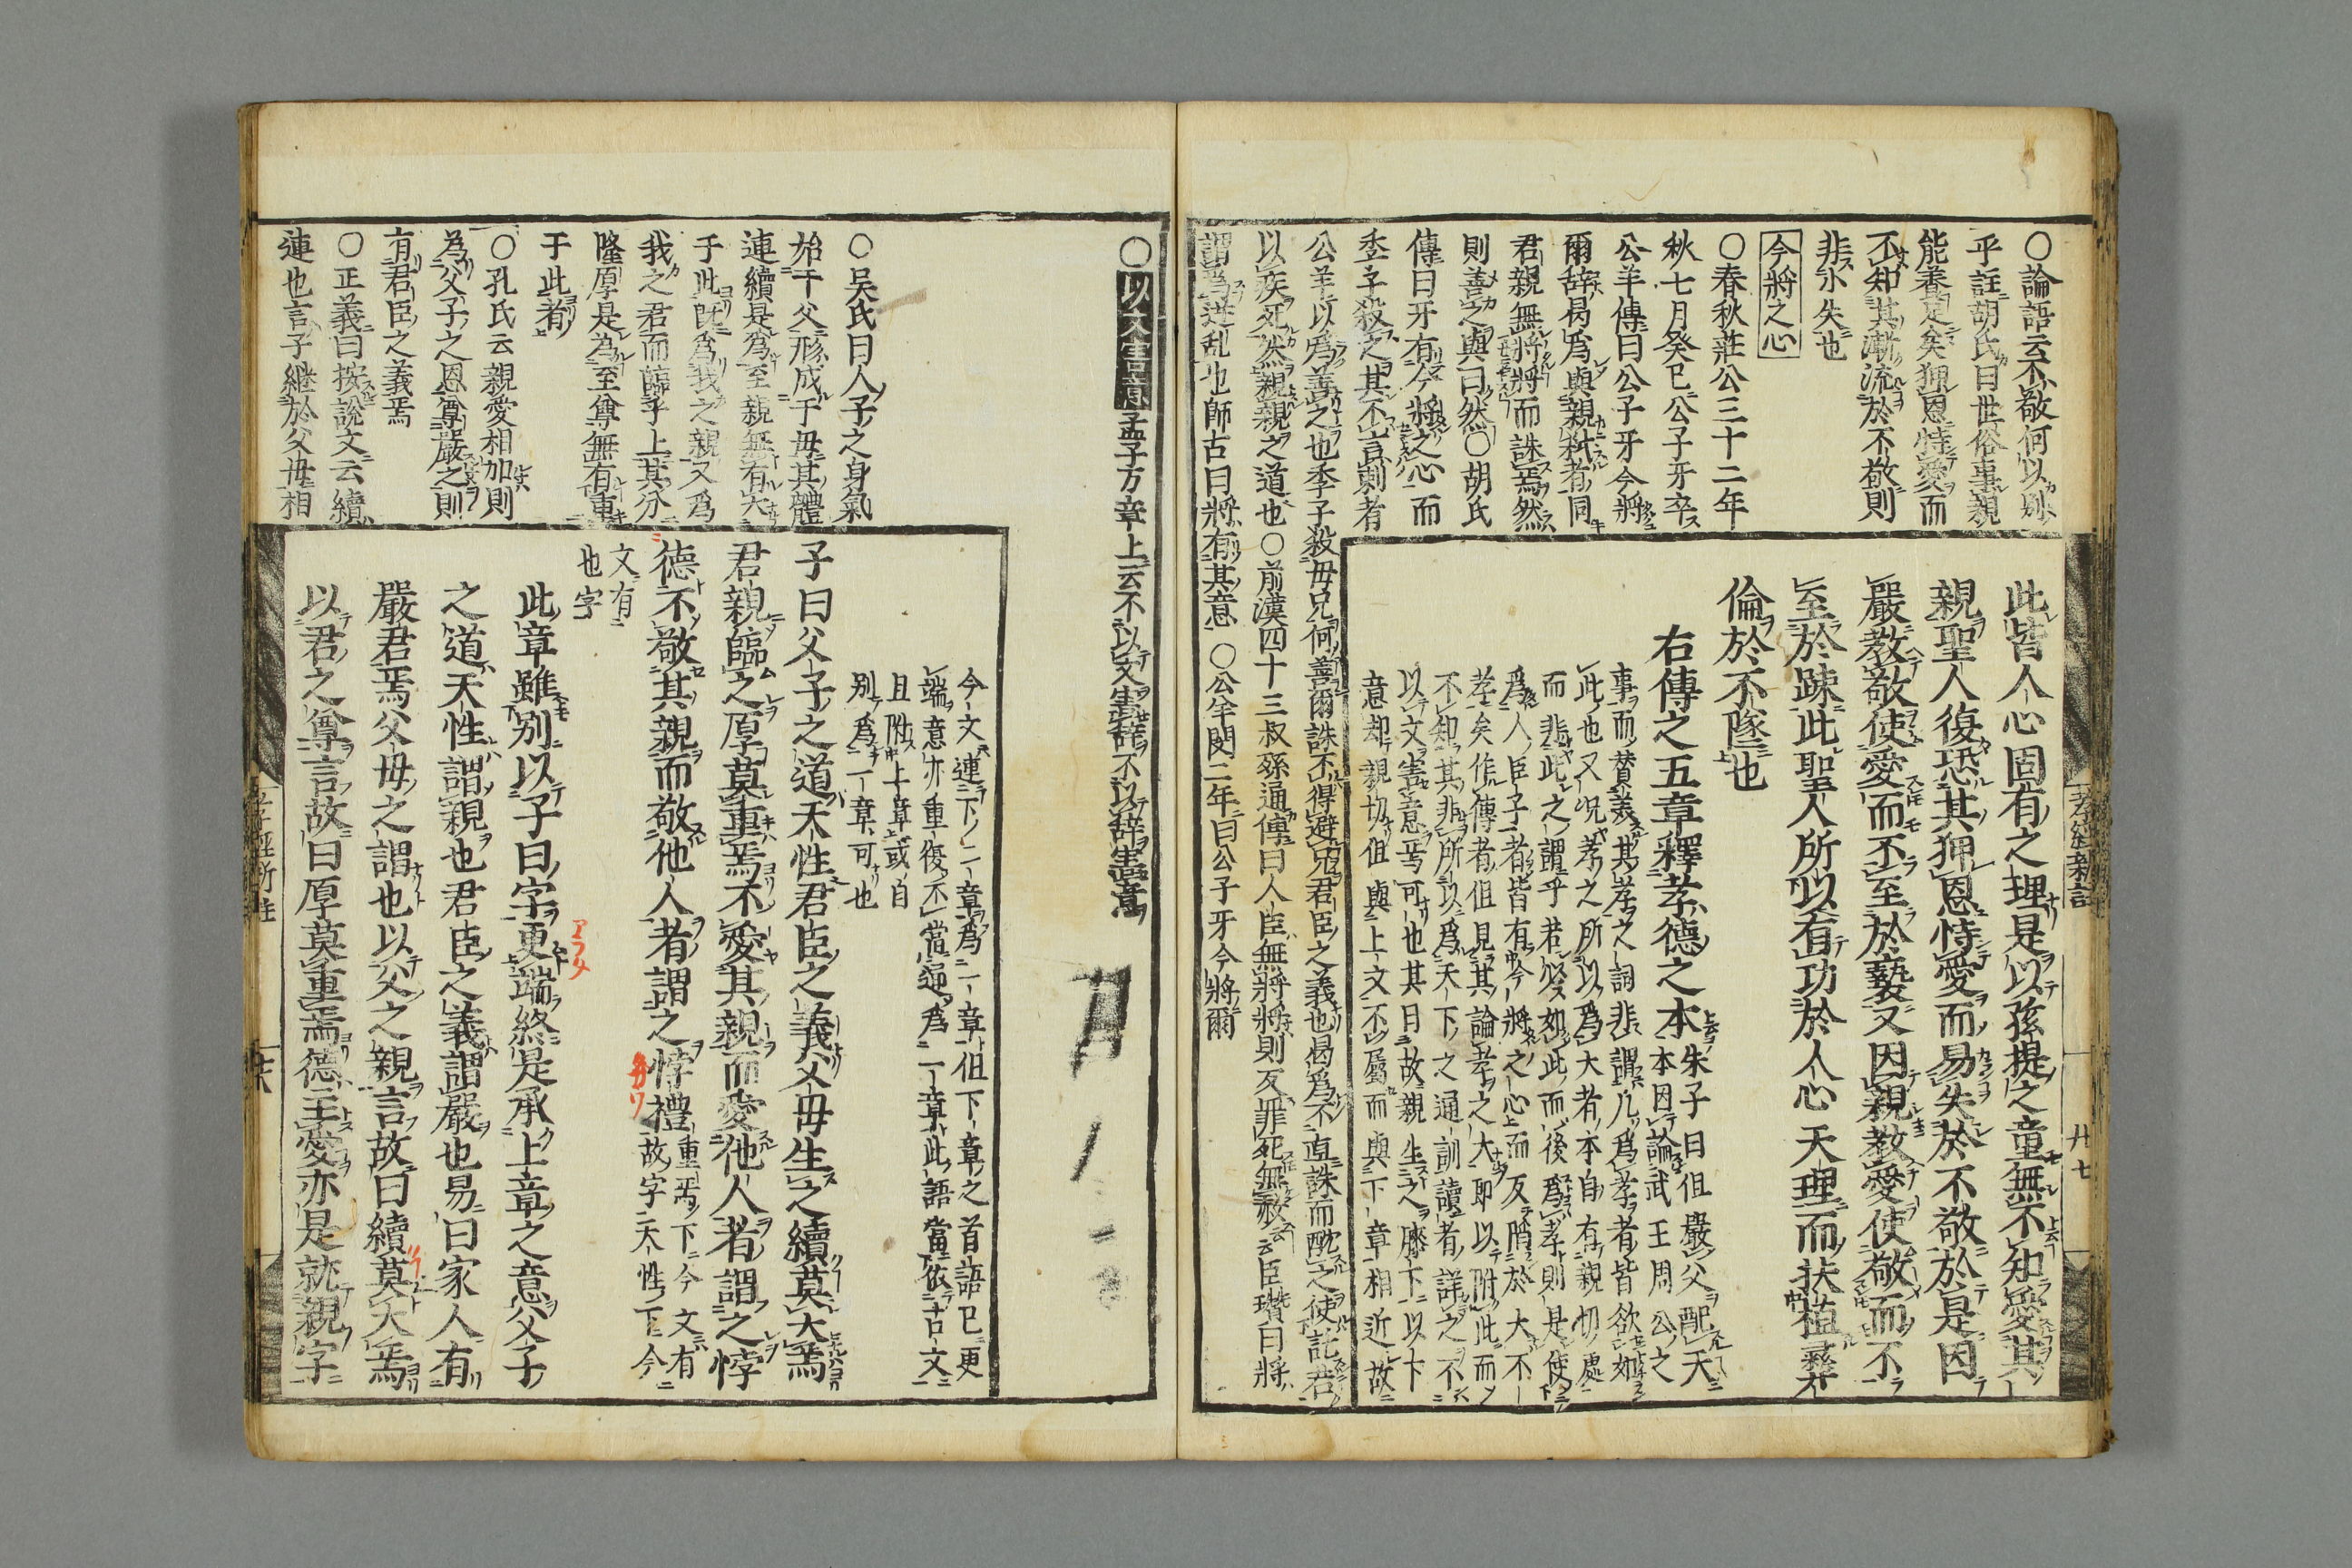 孝經新註
廿七
○論語云不敬何以別
乎註胡氏曰世俗事親
能養足矣狎恩恃愛而
不知其漸流於不敬則
非小失也
今將之心
○春秋莊公三十二年
秋七月癸巳公子牙卒
公羊傳曰公子牙今將
爾辞曷爲與親弒者同
君親無將將而誅焉然
則善之與曰然○胡氏
傳曰牙有今將之心而
季子殺之其不言刺者
公羊以爲善之也季子殺毋兄何善爾誅不得避兄君臣之義也曷爲不直誅而酖之使託若
以疾死然親親之道也○前漢四十三叔孫通傳曰人臣無將將則反罪死無赦云臣瓚曰將
謂爲逆乱也師古曰將有其意○公羊閔二年曰公子牙今將爾
此皆人心固有之理是以孩提之童無不知愛其
親聖人復恐其狎恩恃愛而易失於不敬於是因
嚴教敬使愛而不至於褻又因親教愛使敬而不
至於疎此聖人所以有功於人心天理而扶植彛
倫於不墜也
右傳之五章釋孝德之本朱子曰但嚴父配天
本因論武王周公之
事而賛美其孝之詞非謂凡爲孝者皆欲如
此也又况孝之所以爲大者本自有親切處
而非此之謂乎若必如此而後爲孝則是使
爲人臣子者皆有今將之心而反陷於大不
孝矣作傳者但見其論孝之大即以附此而
不知其非所以爲天下之通訓讀者詳之不
以文害意焉可也其曰故親生之膝下以下
意却親切但與上文不屬而與下章相近故
○以文害意孟子万章上云不以文害辞不以辞害意
今文連下二章爲一章但下章之首語已更
端意亦重復不當通爲一章此語當依古文
且附上章或自
別爲一章可也
○吴氏曰人子之身氣
始于父形成于毋其體
連續是爲至親無有大
于此既爲我之親又爲
我之君而臨乎上其分
隆厚是為至尊無有重
于此者
○孔氏云親愛相加則
為父子之恩尊嚴之則
有君臣之義焉
○正義曰按說文云續
連也言子繼於父毋相
子曰父子之道天性君臣之義父毋生之續莫大焉
君親臨之厚莫重焉不愛其親而愛他人者謂之悖
德不敬其親而敬他人者謂之悖禮重焉下今文有
故字天性下今
文有
也字
此章雖別以子曰字更端終是承上章之意父子
之道天性謂親也君臣之義謂嚴也易曰家人有
嚴君焉父毋之謂也以父之親言故曰續莫大焉
以君之尊言故曰厚莫重焉德主愛亦是就親字